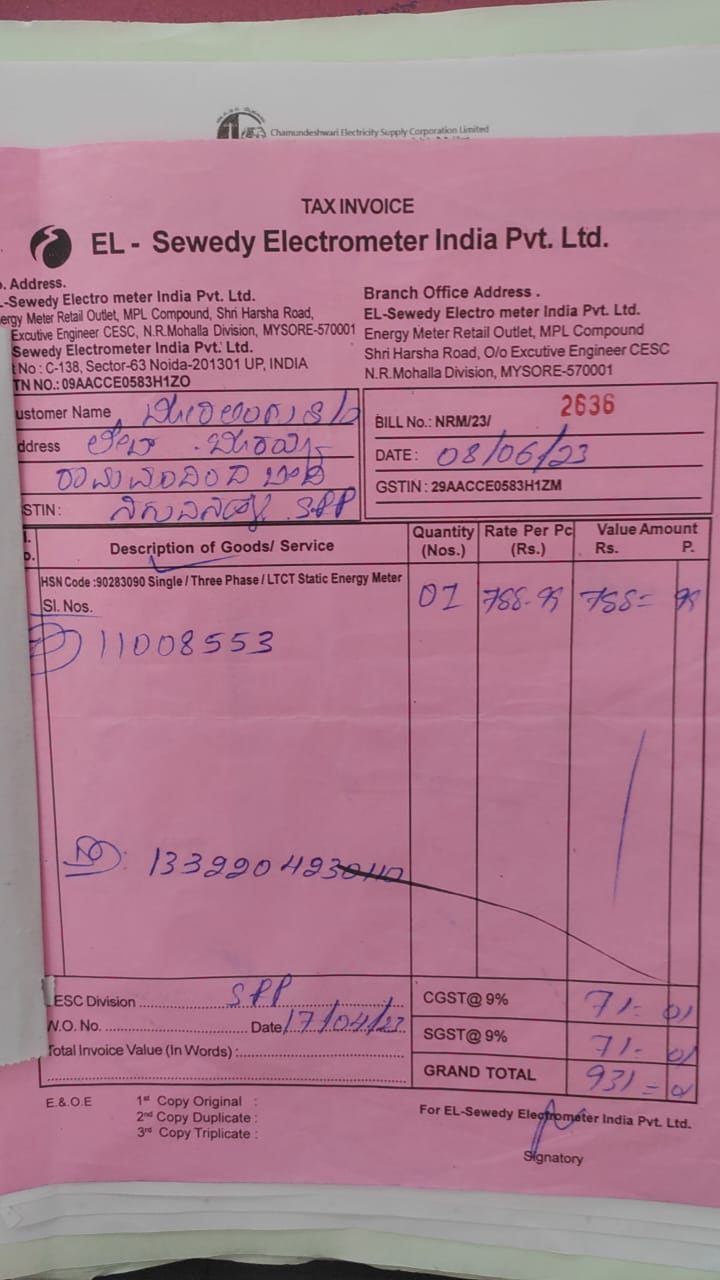 Chamundeshwari Electricity Supply Corporation Limited
TAX INVOICE
EL - Sewedy Electrometer India Pvt. Ltd.
. Address.
-Sewedy Electro meter India Pvt. Ltd.
ergy Meter Retail Outlet, MPL Compound, Shri Harsha Road,
Excutive Engineer CESC, N.R.Mohalla Division, MYSORE-570001
Sewedy Electrometer India Pvt. Ltd.
No : C-138, Sector-63 Noida-201301 UP, INDIA
TN NO.: 09AACCE0583H1ZO
Branch Office Address .
EL-Sewedy Electro meter India Pvt. Ltd.
Energy Meter Retail Outlet, MPL Compound
Shri Harsha Road, O/o Excutive Engineer CESC
N.R.Mohalla Division, MYSORE-570001
ustomer Name
ddress
STIN : SPP
BILL No.: NRM/23/ 2636
DATE : 08/06/23
GSTIN : 29AACCE0583H1ZM
Description of Goods/ Service
Quantity (Nos.)
Rate Per Pc (Rs.)
Value Amount
Rs. P.
HSN Code :90283090 Single / Three Phase / LTCT Static Energy Meter
Sl. Nos.
01 788-99 788= 99
11008553
133220423
ESC Division SPP
W.O. No. Date 17/04/23
Total Invoice Value (In Words) :
CGST@ 9% 71- 01
SGST@ 9% 71- 01
GRAND TOTAL 931=
E.& O.E
1st Copy Original :
2nd Copy Duplicate :
3rd Copy Triplicate :
For EL-Sewedy Electrometer India Pvt. Ltd.
Signatory